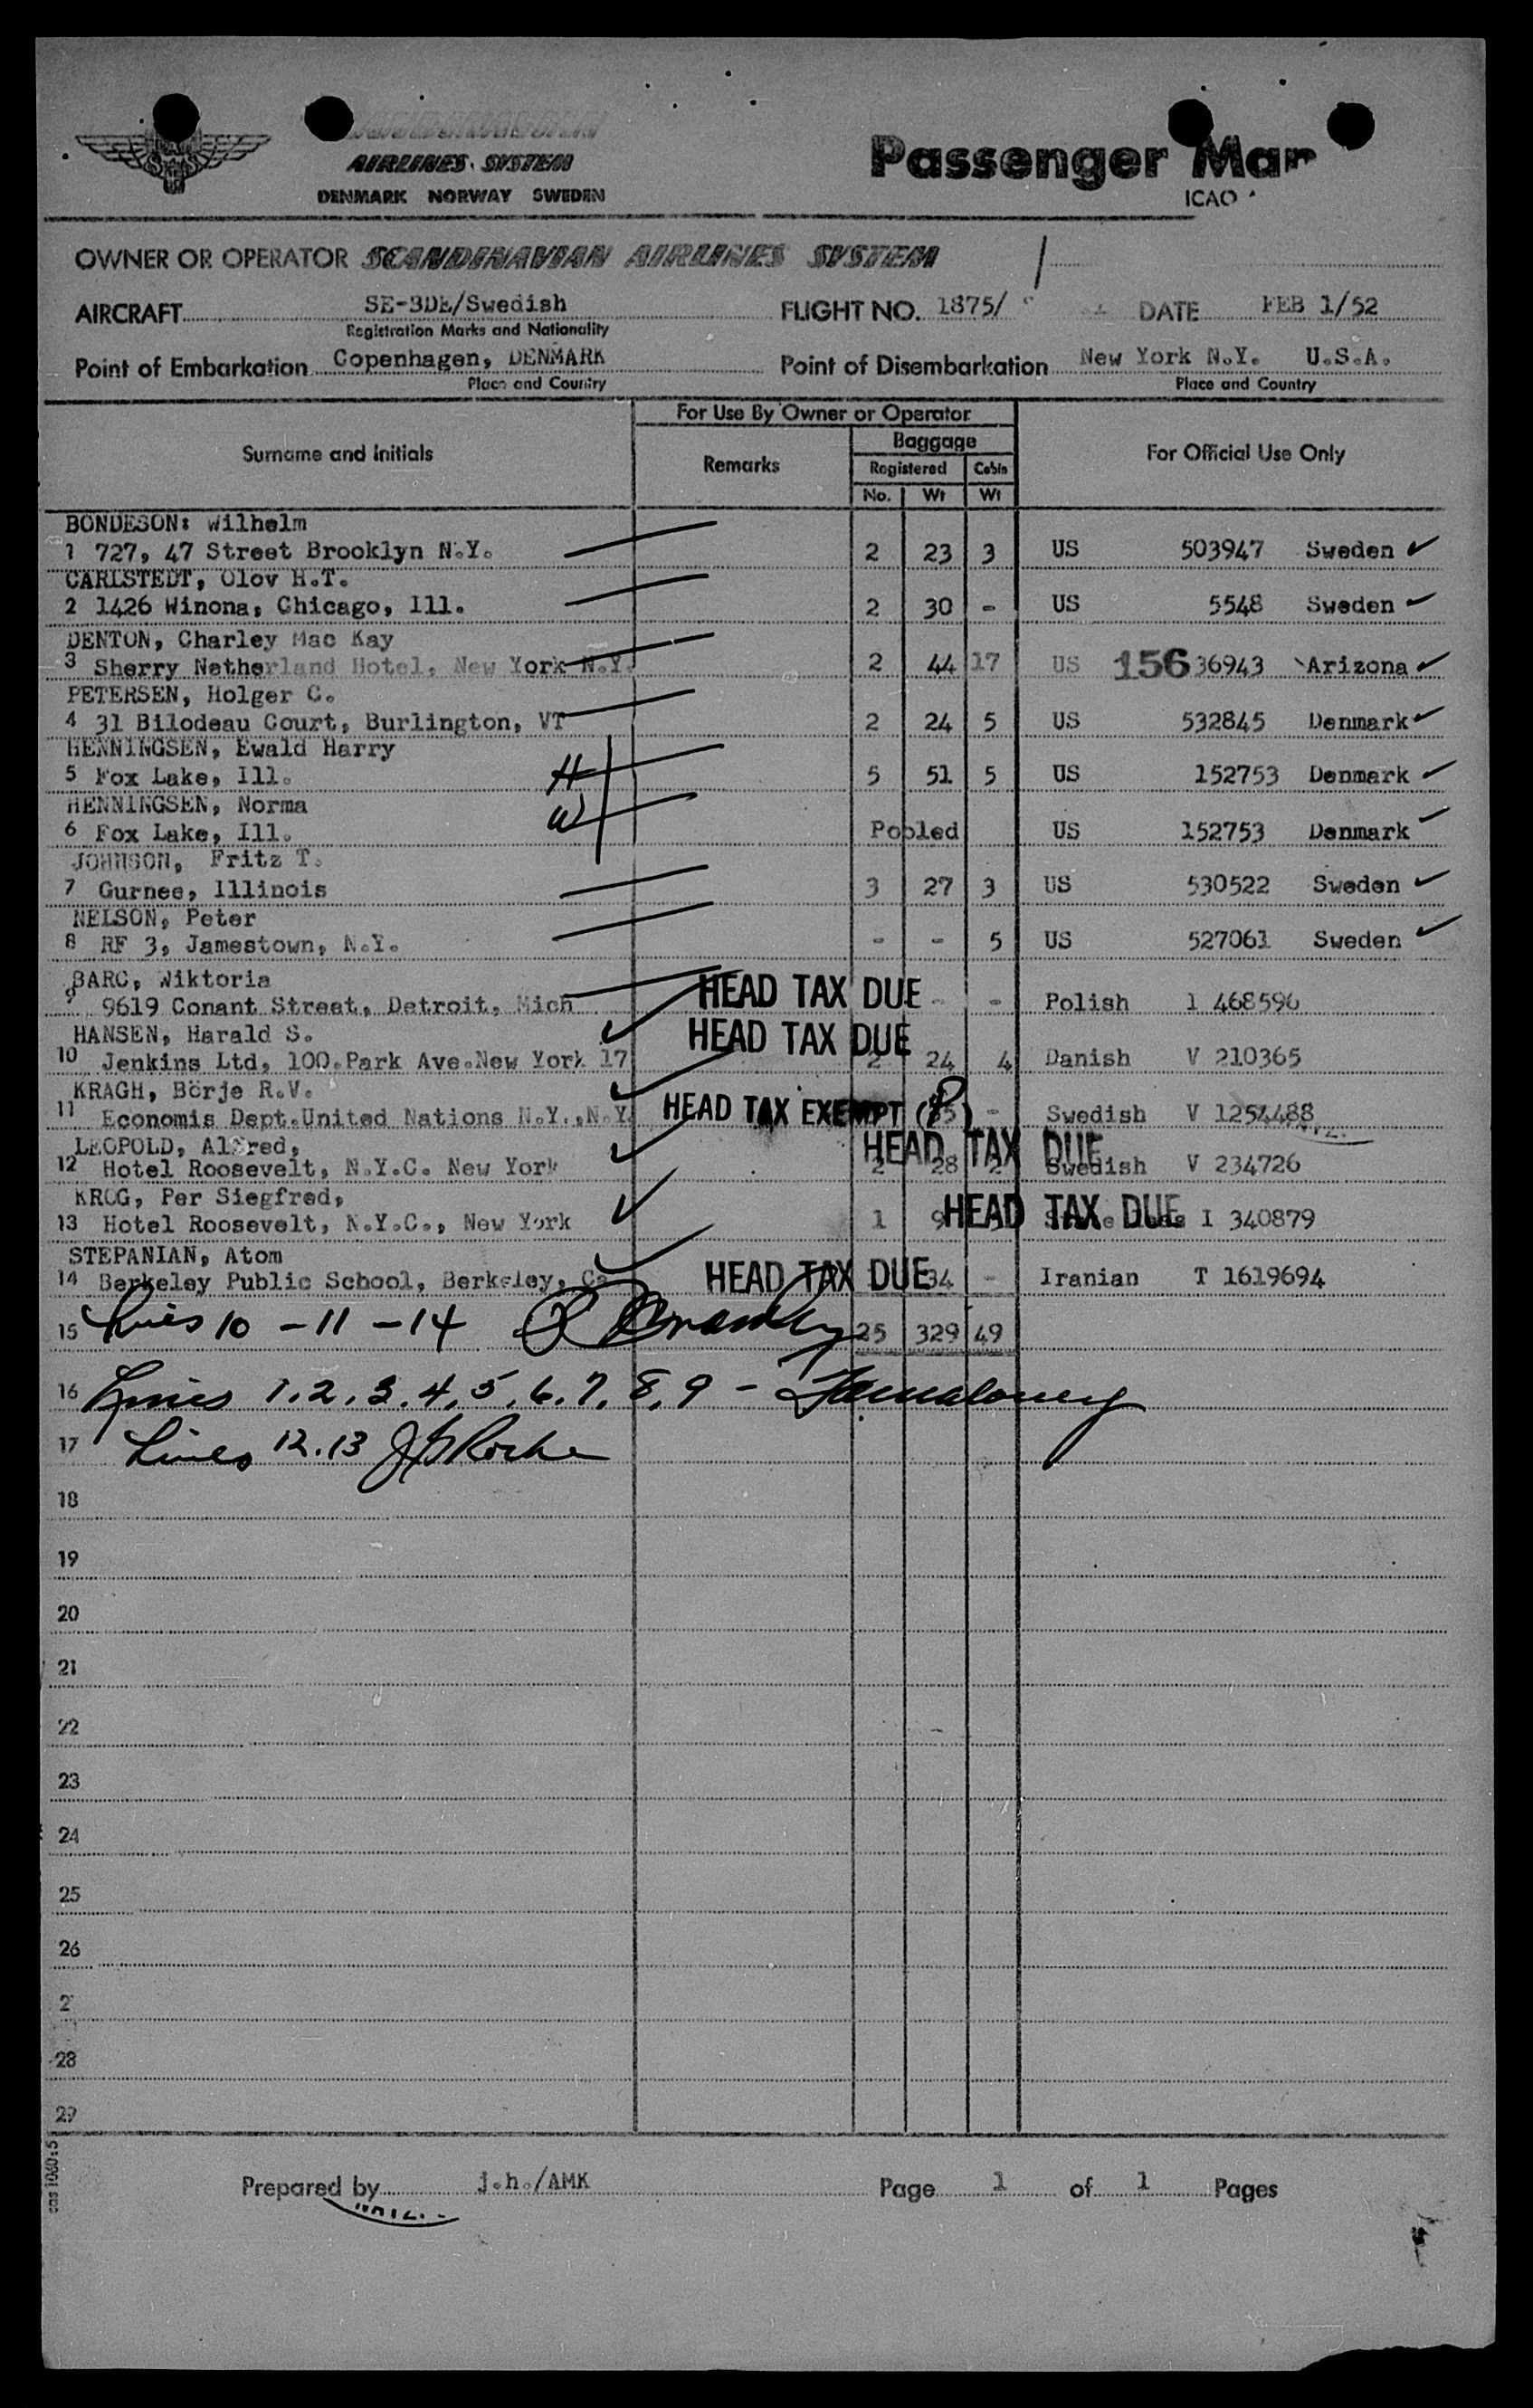 AIRLINES SYSTEM
DENMARK NORWAY SWEDEN
Passenger Man
ICAO
OWNER OR OPERATOR SCANDINAVIAN AIRLINES SYSTEM
AIRCRAFT SE-BDE/Swedish FLIGHT NO. 1875/ DATE FEB 1/52
Registration Marks and Nationality
Point of Embarkation Copenhagen, DENMARK Point of Disembarkation New York N.Y. U.S.A.
Place and Country Place and Country
For Use By Owner or Operator
Surname and Initials Remarks Baggage For Official Use Only
Registered Cabin
No. Wt Wt
BONDESON: Wilhelm
1 727, 47 Street Brooklyn N.Y. 2 23 3 US 503947 Sweden
CARLSTEDT, Olov H.T.
2 1426 Winona, Chicago, Ill. 2 30 - US 5548 Sweden
DENTON, Charley Mac Kay
3 Sherry Netherland Hotel, New York N.Y. 2 44 17 US 156 36943 Arizona
PETERSEN, Holger C.
4 31 Bilodeau Court, Burlington, VT 2 24 5 US 532845 Denmark
HENNINGSEN, Ewald Harry
5 Fox Lake, Ill. H 5 51 5 US 152753 Denmark
HENNINGSEN, Norma
6 Fox Lake, Ill. W Pooled US 152753 Denmark
JOHNSON, Fritz T.
7 Gurnee, Illinois 3 27 3 US 530522 Sweden
NELSON, Peter
8 RF 3, Jamestown, N.Y. - - 5 US 527061 Sweden
BARC, Wiktoria
9 9619 Conant Street, Detroit, Mich HEAD TAX DUE - - Polish 1 468596
HANSEN, Harald S.
10 Jenkins Ltd, 100.Park Ave.New York 17 HEAD TAX DUE 2 24 4 Danish V 210365
KRAGH, Börje R.V.
11 Economis Dept.United Nations N.Y.,N.Y. HEAD TAX EXEMPT - Swedish V 1254488
LEOPOLD, Alfred,
12 Hotel Roosevelt, N.Y.C. New York HEAD TAX DUE 2 28 2 Swedish V 234726
KROG, Per Siegfred,
13 Hotel Roosevelt, N.Y.C., New York 1 9 HEAD TAX DUE I 340879
STEPANIAN, Atom
14 Berkeley Public School, Berkeley, Ca HEAD TAX DUE 34 - Iranian T 1619694
15 Lines 10 - 11 - 14 25 329 49
16 Lines 1.2.3.4.5.6.7.8.9 -
17 Lines 12.13 Roche
18
19
20
21
22
23
24
25
26
2
28
29
Prepared by j.h./AMK Page 1 of 1 Pages